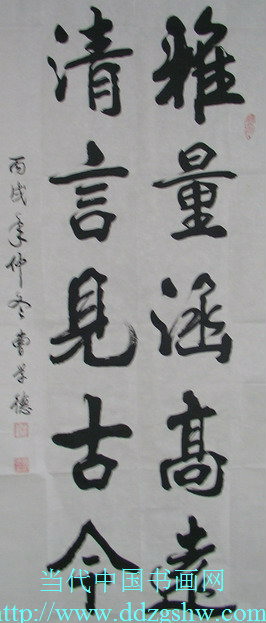 雅量涵高遠
清言見古今
丙戌年仲冬曹学德
当代中国书画网
http://www.ddzgshw.com/